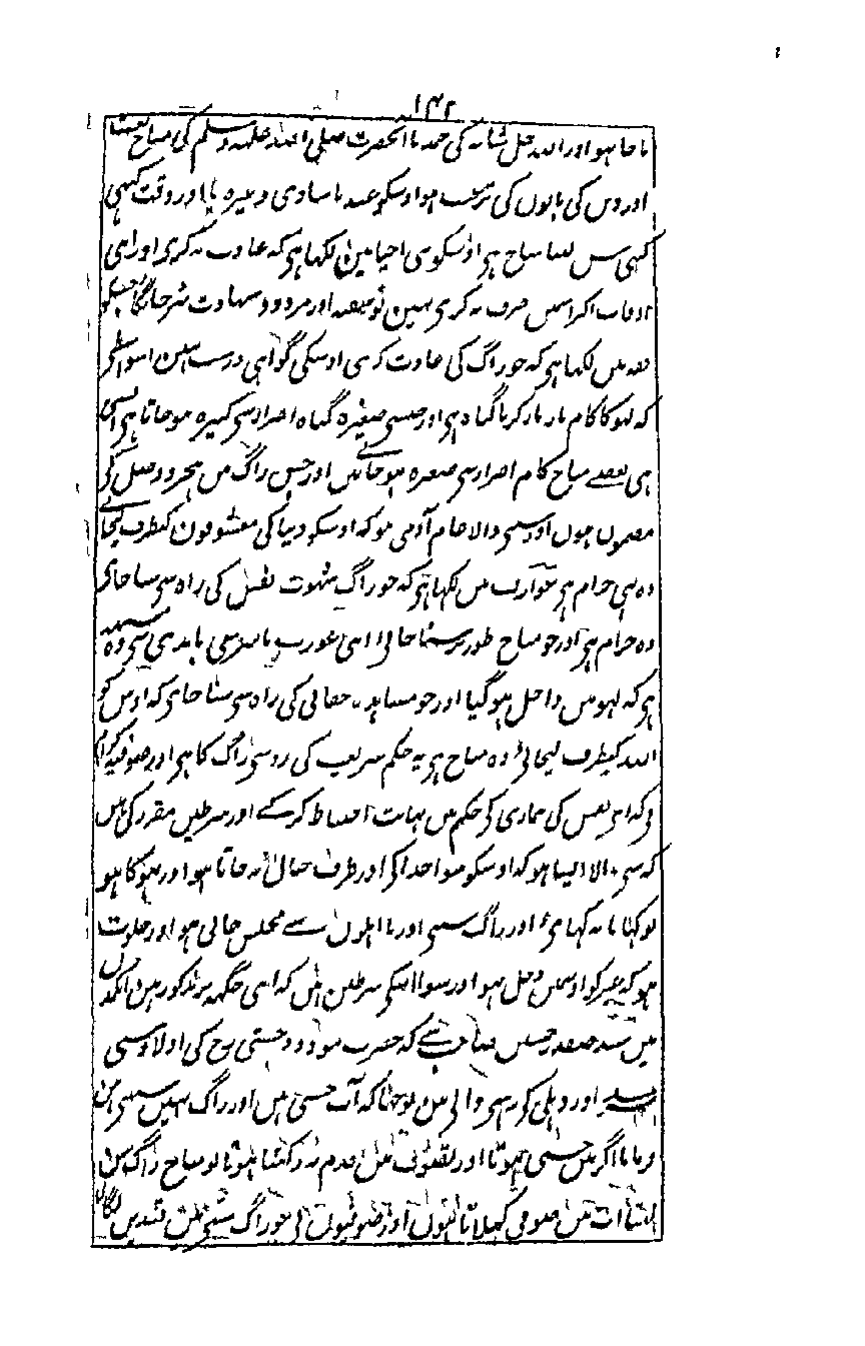 ۱۴۲
ناجائز ہو اور اللہ جل شانہ کی حمد یا آنحضرت صلی اللہ علیہ وسلم کی
اور دین کی باتوں کی ترغیب ہو اوسکو عید یا شادی وغیرہ یا اور وقت کبھی
کبھی سن لینا مباح ہر اوسکو بھی احیا مین لکھا ہر کہ عادت نہ کری اور اپنی
اوقات اکثر اسمین صرف نہ کری نہین تو سفیہ اور مردود شہادت ہر جائیگا جسکو
فقہ مین لکھا ہر کہ جو راگ کی عادت کری اوسکی گواہی درست نہین اسواسطی
کہ لہو کا کام بار بار کرنا گناہ ہر اور جیسی صغیرہ گناہ اصرار سی کبیرہ ہو جاتا ہر ایسی
ہی بعضے مباح کام اصرار سی صغیرہ ہو جاتے ہین اور جس راگ مین ہجر و وصل کی
مضمون ہون اور سننی والا عام آدمی ہو کہ اوسکو دنیا کی معشوقون کیطرف لیجائے
وہ بھی حرام ہر عوارف مین لکھا ہر کہ جو راگ شہوت نفس کی راہ سی سنا جائی
وہ حرام ہر اور جو مباح طور پر سنا جائی اپنی عورت یا باندی سی وہ
ہر کہ لہو مین داخل ہو گیا اور جو مشاہدہ حقانی کی راہ سی سنا جائی کہ اوس کو
اللہ کیطرف لیجائی وہ مباح ہر یہ حکم شریعت کی رو سی راگ کا ہر اور صوفیہ کرام
نی نفس کی بیماری کی حکم مین نہایت احتیاط کر کے اور شرطین مقرر کی ہین
کہ سننی والا ایسا ہو کہ اوسکو سوا خدا کی اور طرف خیال نہ جاتا ہو اور بھوکا ہو
تو کھانا نہ کھائی اور راگ سنی اور نا اہلون سے مجلس خالی ہو اور خلوت
ہو کہ غیر کو اوسمین دخل نہو اور سوا اسکی شرطین ہین کہ اپنی جگہہ پر مذکور ہین ایکدن
مین سید صفدر حسین صاحب سے کہ حضرت مودود چشتی رح کی اولاد سی
اور دہلی کر رہنی والی ہین پوچھا کہ آپ چشتی ہین اور راگ نہین سنتی
فرمایا اگر مین چشتی ہوتا اور تصوف مین قدم رکھتا ہوتا تو مباح راگ سن
لیتا اب مین صوفی کہلاتا نہون اور صوفیون کی جو راگ سنی